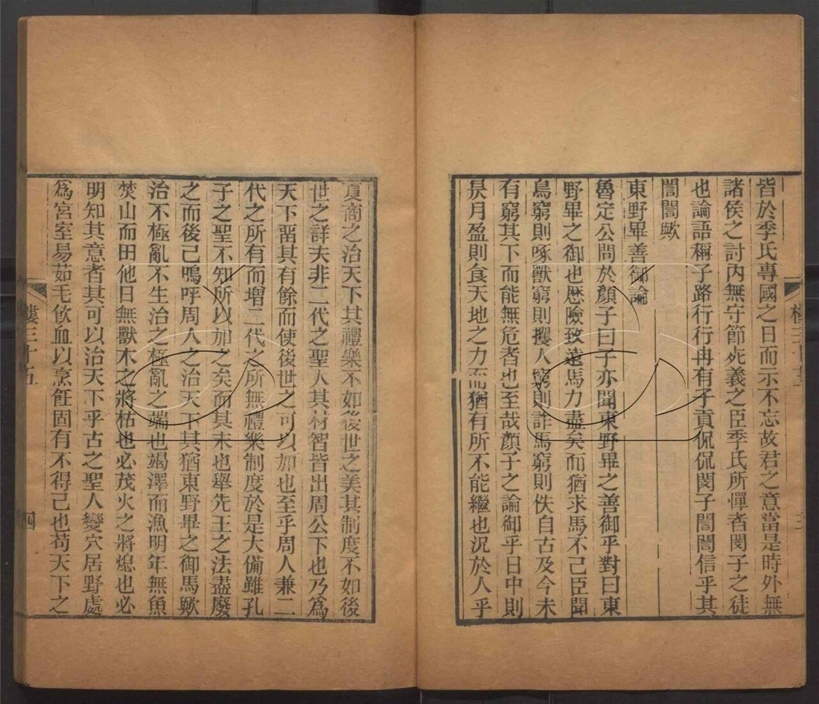 皆於季氏專國之日而示不忘故君之意當是時外無
諸侯之討內無守節死義之臣季氏所憚者閔子之徒
也論語稱子路行行冉有子貢侃侃閔子誾誾信乎其
誾誾歟
東野畢善御論
魯定公問於顏子曰子亦聞東野畢之善御乎對曰東
野畢之御也歷險致遠馬力盡矣而猶求馬不已臣聞
鳥窮則啄獸窮則攫人窮則詐馬窮則佚自古及今未
有窮其下而能無危者也至哉顏子之論御乎日中則
昃月盈則食天地之力而猶有所不能繼也況於人乎
夏商之治天下其禮樂不如後世之美其制度不如後
世之詳夫非二代之聖人其材智皆出周公下也乃為
天下留其有餘而使後世之可以加也至乎周人兼二
代之所有而增二代之所無禮樂制度於是大備雖孔
子之聖不知所以加之矣而其末也舉先王之法盡廢
之而後已嗚呼周人之治天下其猶東野畢之御馬歟
治不極亂不生治之極亂之端也竭澤而漁明年無魚
焚山而田他日無獸木之將枯也必茂火之將熄也必
明知其意者其可以治天下乎古之聖人變穴居野處
為宮室易茹毛飲血以烹飪固有不得已也苟天下之
樓三十五
四